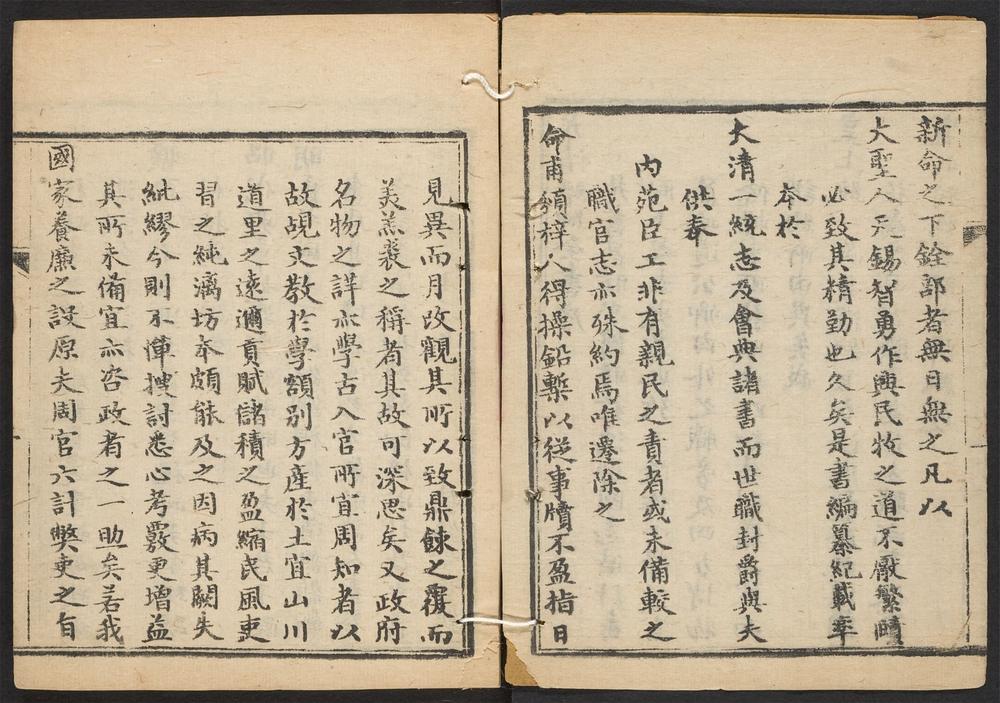 新命之下銓部者無日無之凡以
大聖人天錫智勇作興民牧之道不厭繁賾
必致其精勤也久矣是書編纂紀載率
本於
大清一統志及會典諸書而世職封爵與夫
供奉
內苑臣工非有親民之責者或未備較之
職官志亦殊約焉唯遷除之
命甫頒梓人得操鉛槧以從事牘不盈指日
見異而月改觀其所以致鼎餗之覆而
美羔裘之稱者其故可深思矣又政府
名物之詳亦學古入官所宜周知者以
故覘文教於學額別方產於土宜山川
道里之遠邇貢賦儲積之盈縮民風吏
習之純漓坊本頗能及之因病其闕失
紕繆今則不憚搜討悉心考覈更增益
其所未備宜亦咨政者之一助矣若我
國家養廉之設原夫周官六計弊吏之旨